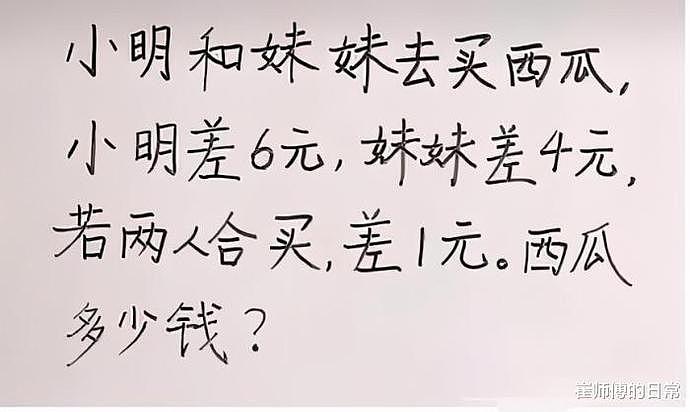 小明和妹妹去买西瓜,
小明差6元,妹妹差4元,
若两人合买,差1元。西瓜
多少钱?
崔师傅的日常